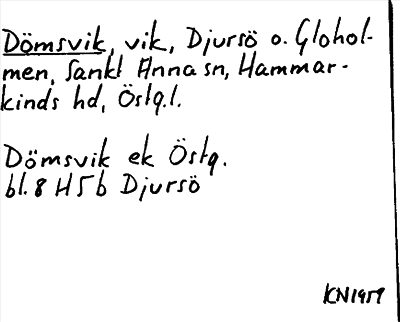 Dömsvik, vik, Djursö o. Glohol-
men, Sankt Anna sn, Hammar-
kinds hd, Östg.l.
Dömsvik ek Östg.
bl. 8 H 5 b Djursö
KN1959